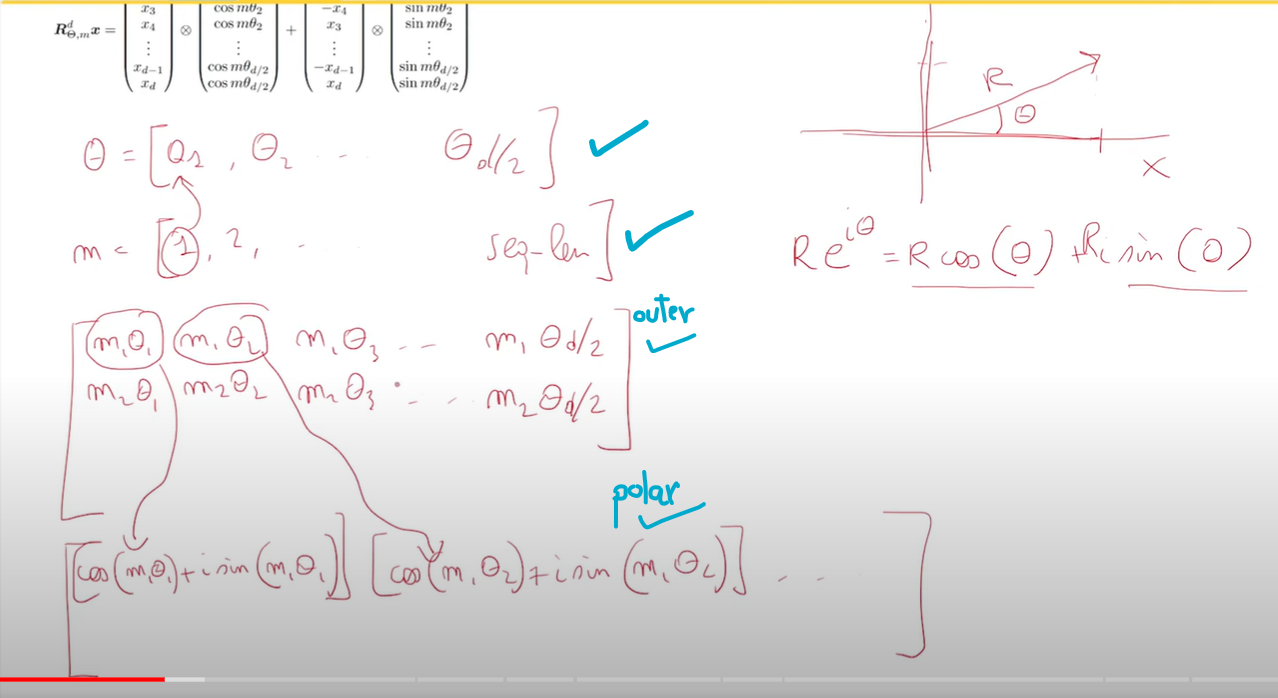 R^d_{Θ,m} x = ( x3 x4 ⋮ x_{d−1} x_d ) ⊗ ( cos mθ2 cos mθ2 ⋮ cos mθ_{d/2} cos mθ_{d/2} ) + ( −x4 x3 ⋮ −x_{d−1} x_d ) ⊗ ( sin mθ2 sin mθ2 ⋮ sin mθ_{d/2} sin mθ_{d/2} )
R
θ
x
θ = [θ1, θ2 ... θ_{d/2}]
m = [1, 2, ... seq_len]
Re^{iθ} = R cos(θ) + R i sin(θ)
outer
[ m1θ1 m1θ2 m1θ3 ... m1θ_{d/2}
m2θ1 m2θ2 m2θ3 ... m2θ_{d/2} ]
polar
[ [cos(m1θ1) + i sin(m1θ1)] [cos(m1θ2) + i sin(m1θ2)] ... ]